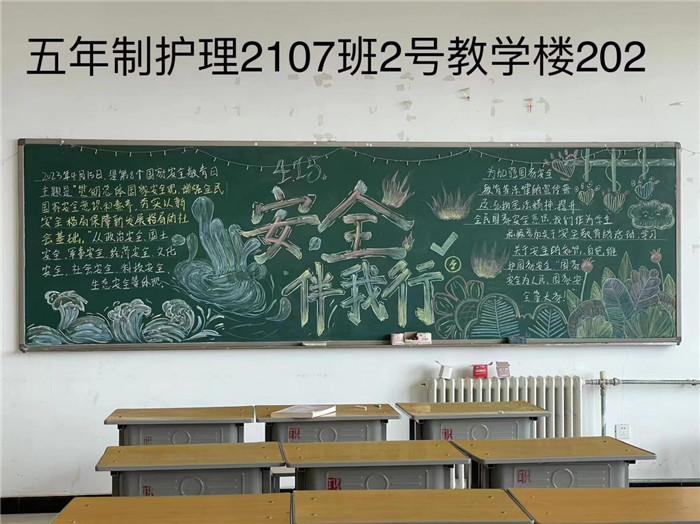 五年制护理2107班2号教学楼202
2023年4月15日，是第8个国家安全教育日
主题是"贯彻总体国家安全观，增强全民
国家安全意识和素养，夯实以新
安全格局保障新发展格局的社
会基础，"从政治安全、国土
安全、军事安全、经济安全、文化
安全、社会安全、科技安全、
生态安全等体现
4.15
安全
伴我行
为加强国家安全
教育
全民国家安全意识，我们作为学生
积极参加关于安全教育的活动，学习
关于安全的知识，自觉维
护国家安全。国家
安全为人民，国家安
全靠大家！